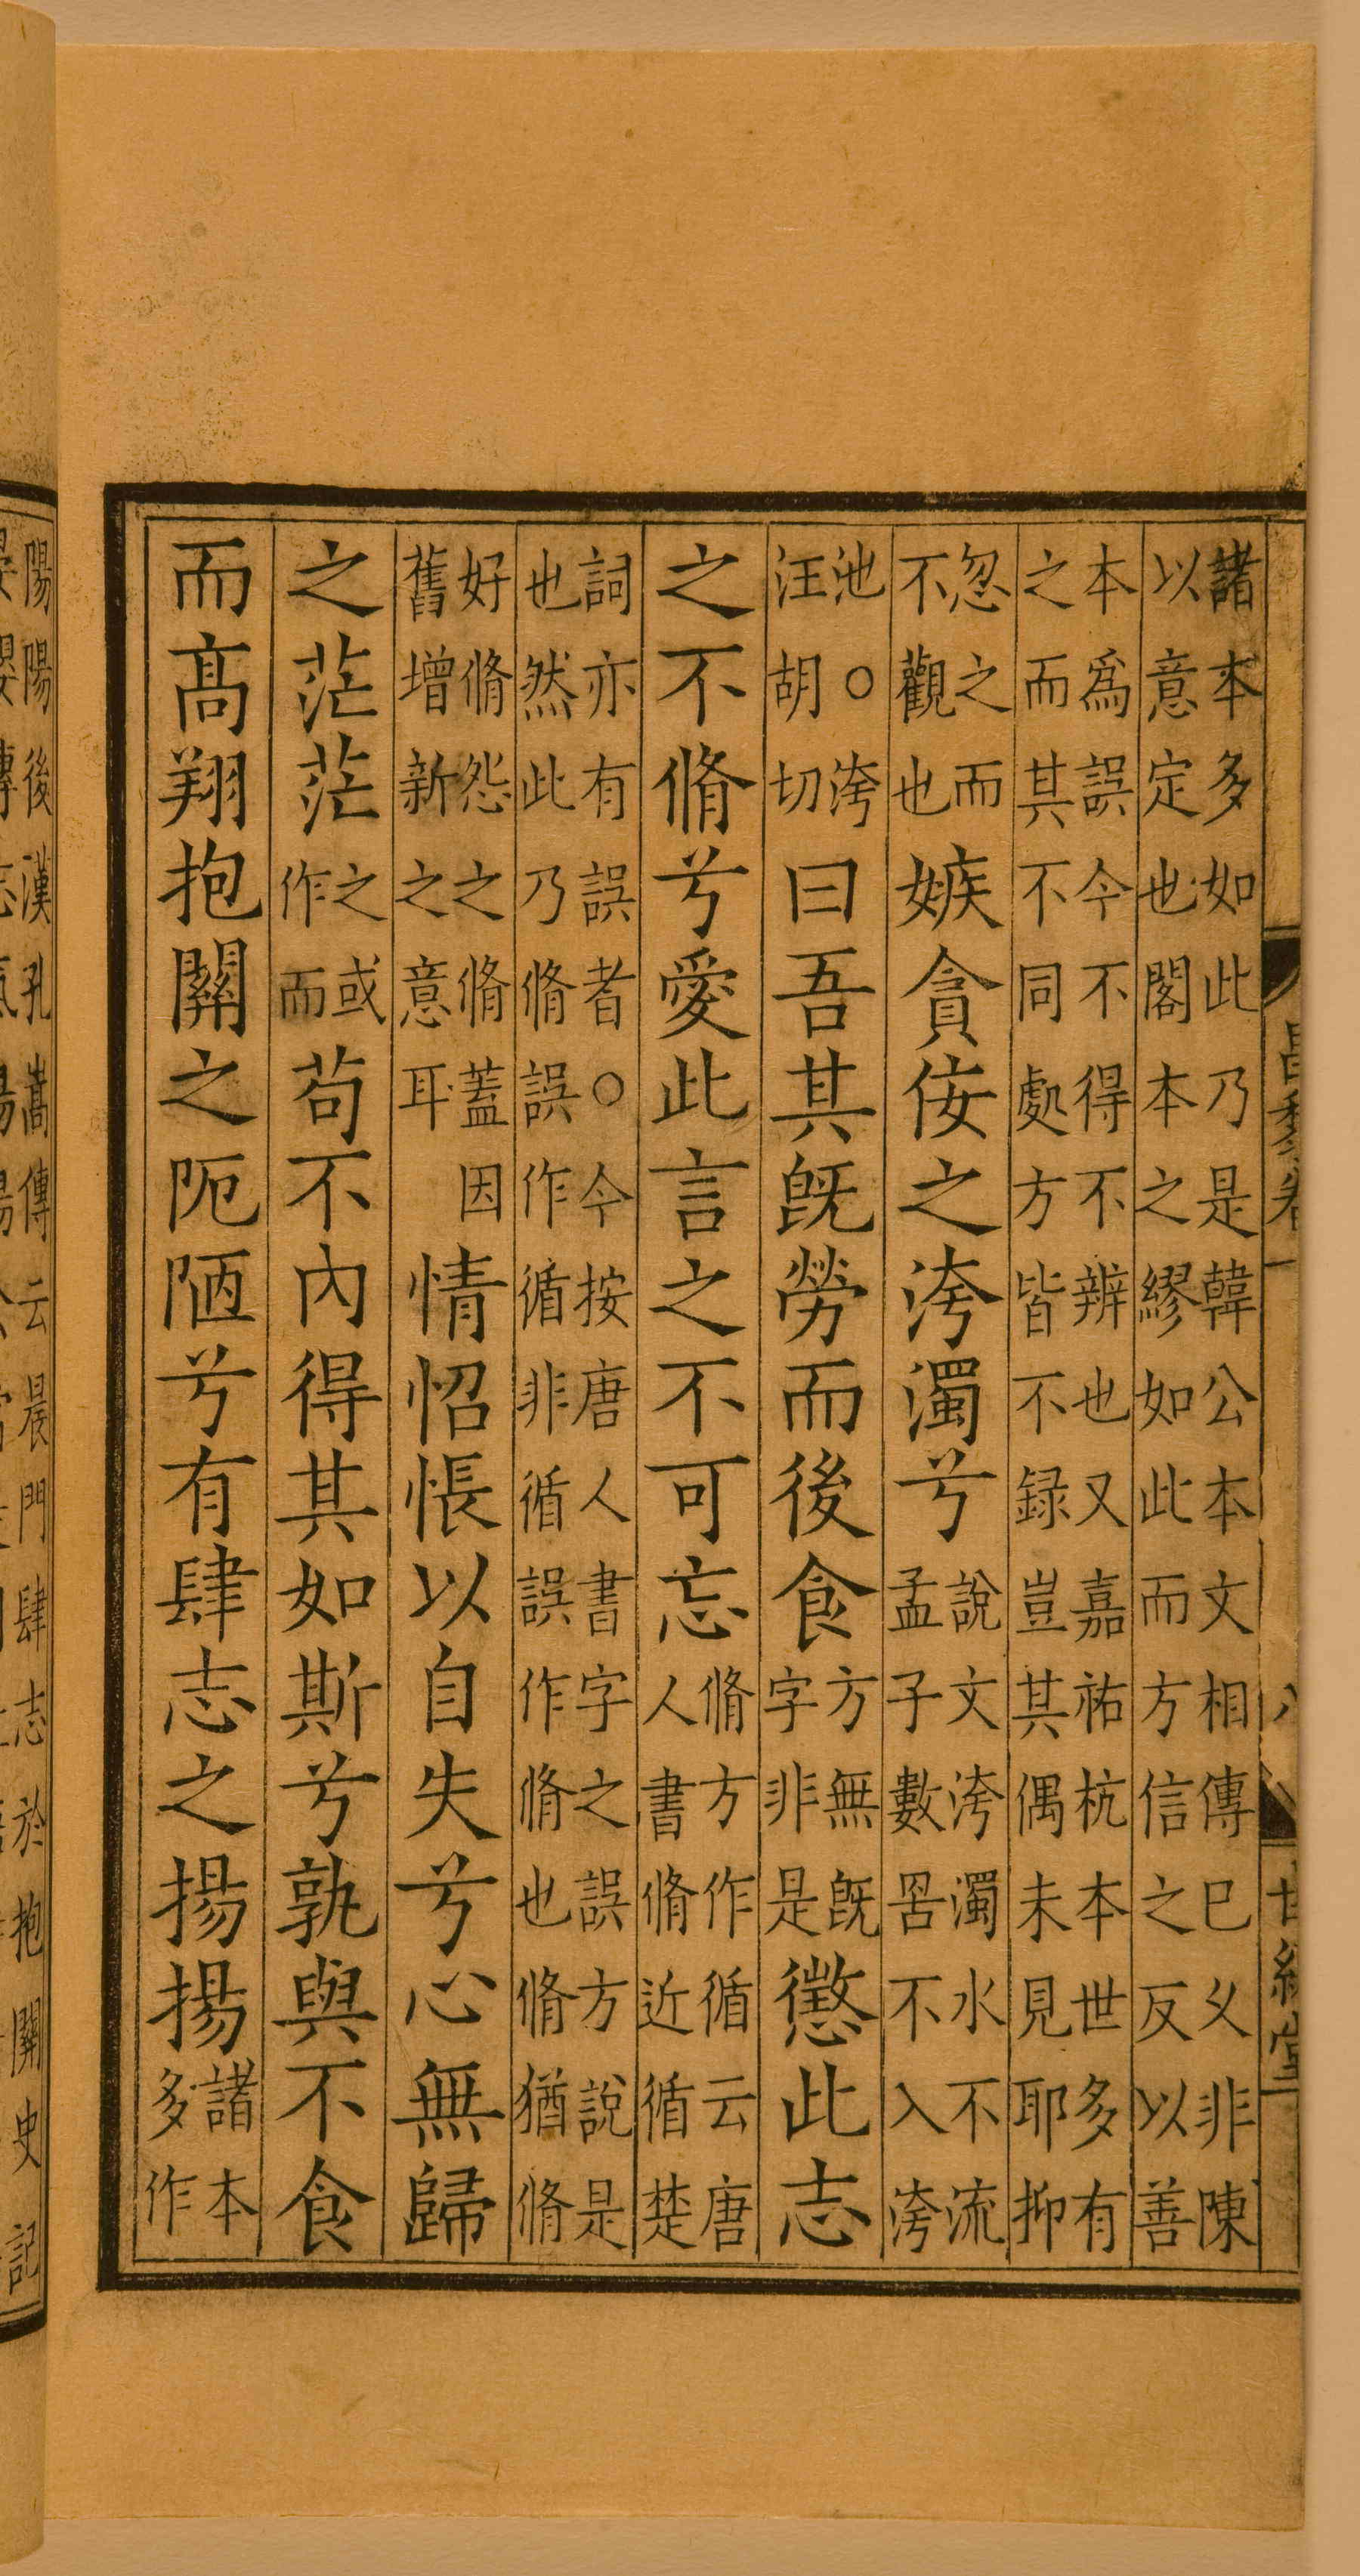 昌黎卷一
八
世綵堂
諸本多如此乃是韓公本文相傳已乆非陳
以意定也閣本之繆如此而方信之反以善
本爲誤今不得不辨也又嘉祐杭本世多有
之而其不同處方皆不録豈其偶未見耶抑
忽之而
不觀也
嫉貪佞之洿濁兮
說文洿濁水不流
孟子數罟不入洿
池○洿
汪胡切
曰吾其旣勞而後食
方無旣
字非是
懲此志
之不脩兮愛此言之不可忘
脩方作循云唐
人書脩近循楚
詞亦有誤者○今按唐人書字之誤方說是
也然此乃脩誤作循非循誤作脩也脩猶脩
好脩怨之脩蓋因
舊增新之意耳
情怊悵以自失兮心無歸
之茫茫
之或
作而
苟不內得其如斯兮孰與不食
而髙翔抱關之阨陋兮有肆志之揚揚
諸本
多作
陽陽後漢孔嵩傳云晨門肆志於抱關史記